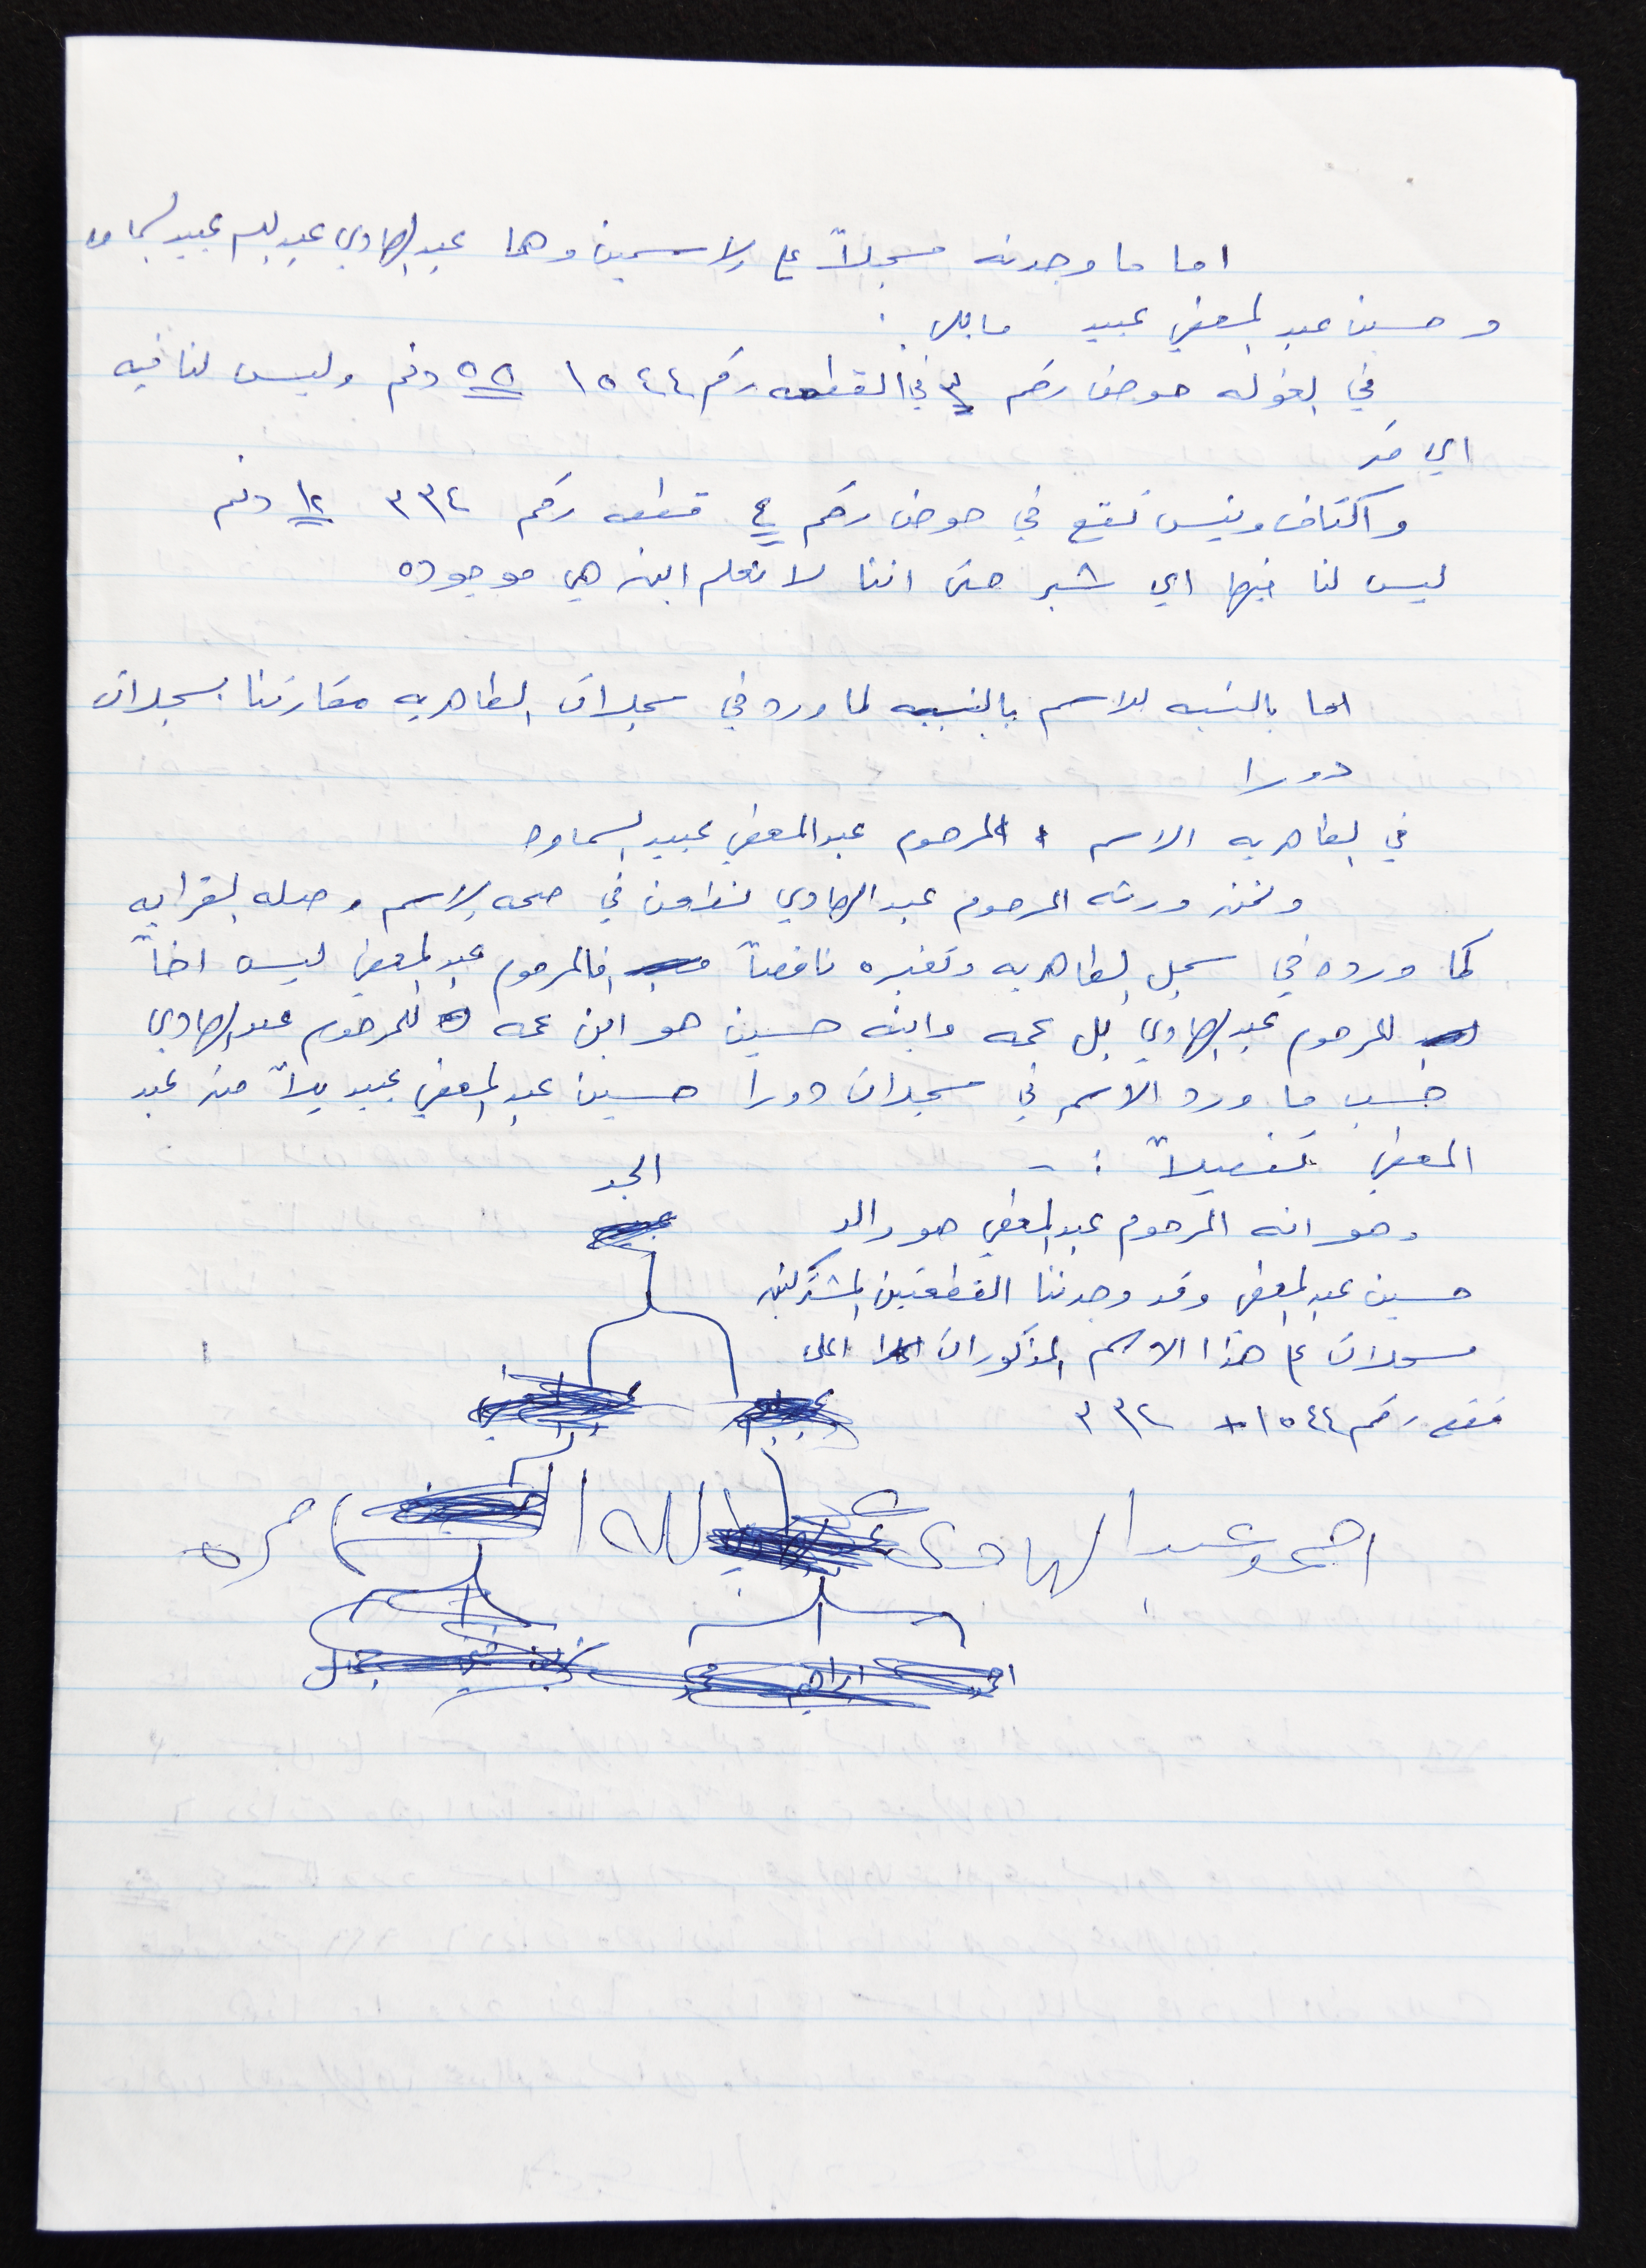 اما ما وجدته مسجلاً على الاسمين وهما عبد الهادي عبد السلام عبيد السماو
و حسين عبد المعطي عبيد ما يلي :
في الغوله حوض رقم ٣ في القطعه رقم ١٥٤٤ ٥٥ دنم وليس لنا فيه
اي متر
و اكتاف ونيس تقع في حوض رقم ٤ قطعه رقم ٣٣٤ ١٢ دنم
ليس لنا فيها اي شبر حتى اننا لا نعلم اين هي موجوده
اما بالنسبه للاسم بالنسبه لما ورد في سجلات الظاهريه مقارنتنا بسجلات
دورا
في الظاهريه الاسم المرحوم عبد المعطي عبيد السماوه
ونحن ورثه المرحوم عبد الهادي نطعن في صحه الاسم وصله القرابه
كما ورد في سجل الظاهريه ونعتبره ناقصاً فالمرحوم عبد المعطي ليس اخاً
للمرحوم عبد الهادي بل عمه وابنه حسين هو ابن عمه للمرحوم عبد الهادي
حسب ما ورد الاسم في سجلات دورا حسين عبد المعطي عبيد بدلاً من عبد
المعطي تفصيلاً : -
الجد
وهو انه المرحوم عبد المعطي هو والد
حسين عبد المعطي وقد وجدننا القطعتين المشتركتين
مسجلات على هذا الاسم المذكورات اعلى
قطع رقم ١٥٤٤ + ٣٣٤
احمد عبد الهادي الله
احمد ابراهيم محمد